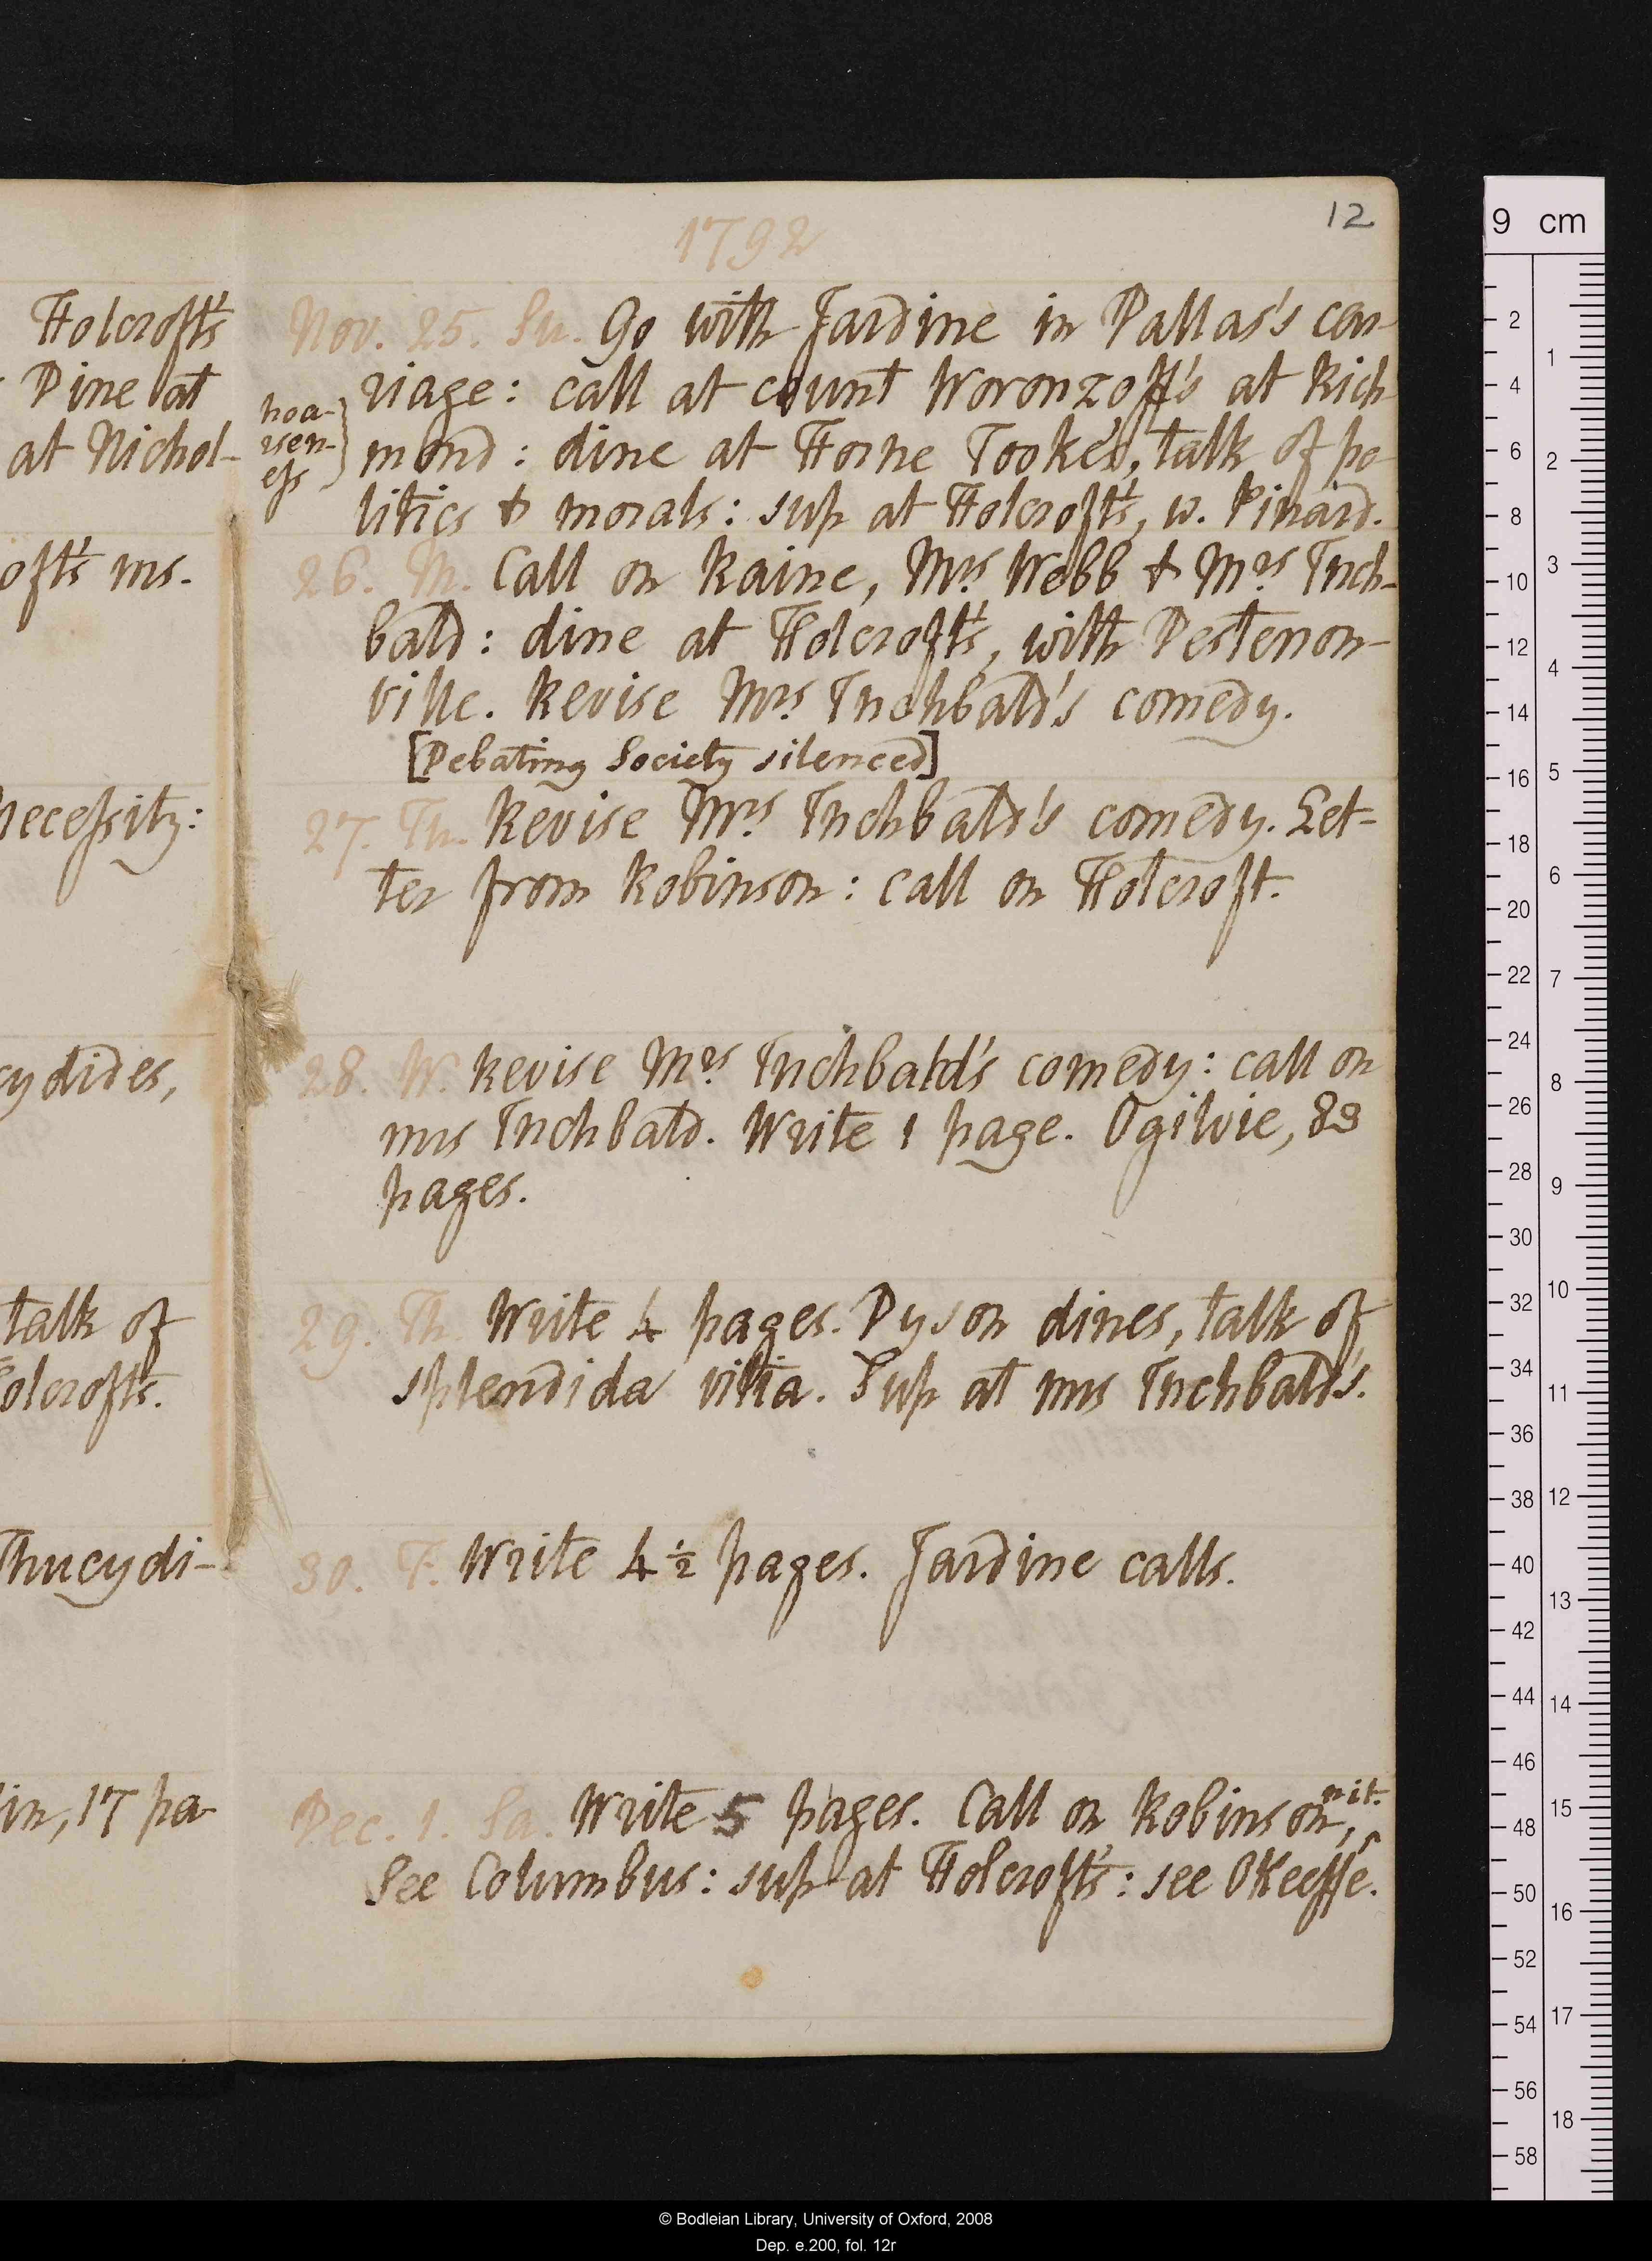 12
1792
Holcroft's
Dine at
at Nichol-
oft's ms.
necessity:
cydides,
talk of
olcroft's.
Thucydi-
in, 17 pa-
Nov. 25. Su. Go with Jardine in Dallas's car-
riage: call at count Woronzoff's at Rich
hoa-
rsen-
ess
mond: dine at Horne Tooke's, talk of po-
litics & morals: sup at Holcroft's, w. Pinard.
26. M. Call on Raine, Mrs Webb & Mrs Inch-
bald: dine at Holcroft's, with Pestenon-
ville. Revise Mrs Inchbald's comedy.
[Debating Society silenced]
27. Tu. Revise Mrs Inchbald's comedy. Let-
ter from Robinson: call on Holcroft.
28. W. Revise Mrs Inchbald's comedy: call on
mrs Inchbald. Write 1 page. Ogilvie, 88
pages.
29. Th. Write 4 pages. Dyson dines, talk of
splendida vitia. Sup at mrs Inchbald's.
30. F. Write 4 1/2 pages. Jardine calls.
Dec. 1. Sa. Write 5 pages. Call on Robinson, nit.
See Columbus: sup at Holcroft's: see OKeeffe.
9 cm
2
4
6
8
10
12
14
16
18
20
22
24
26
28
30
32
34
36
38
40
42
44
46
48
50
52
54
56
58
1
2
3
4
5
6
7
8
9
10
11
12
13
14
15
16
17
18
© Bodleian Library, University of Oxford, 2008
Dep. e.200, fol. 12r